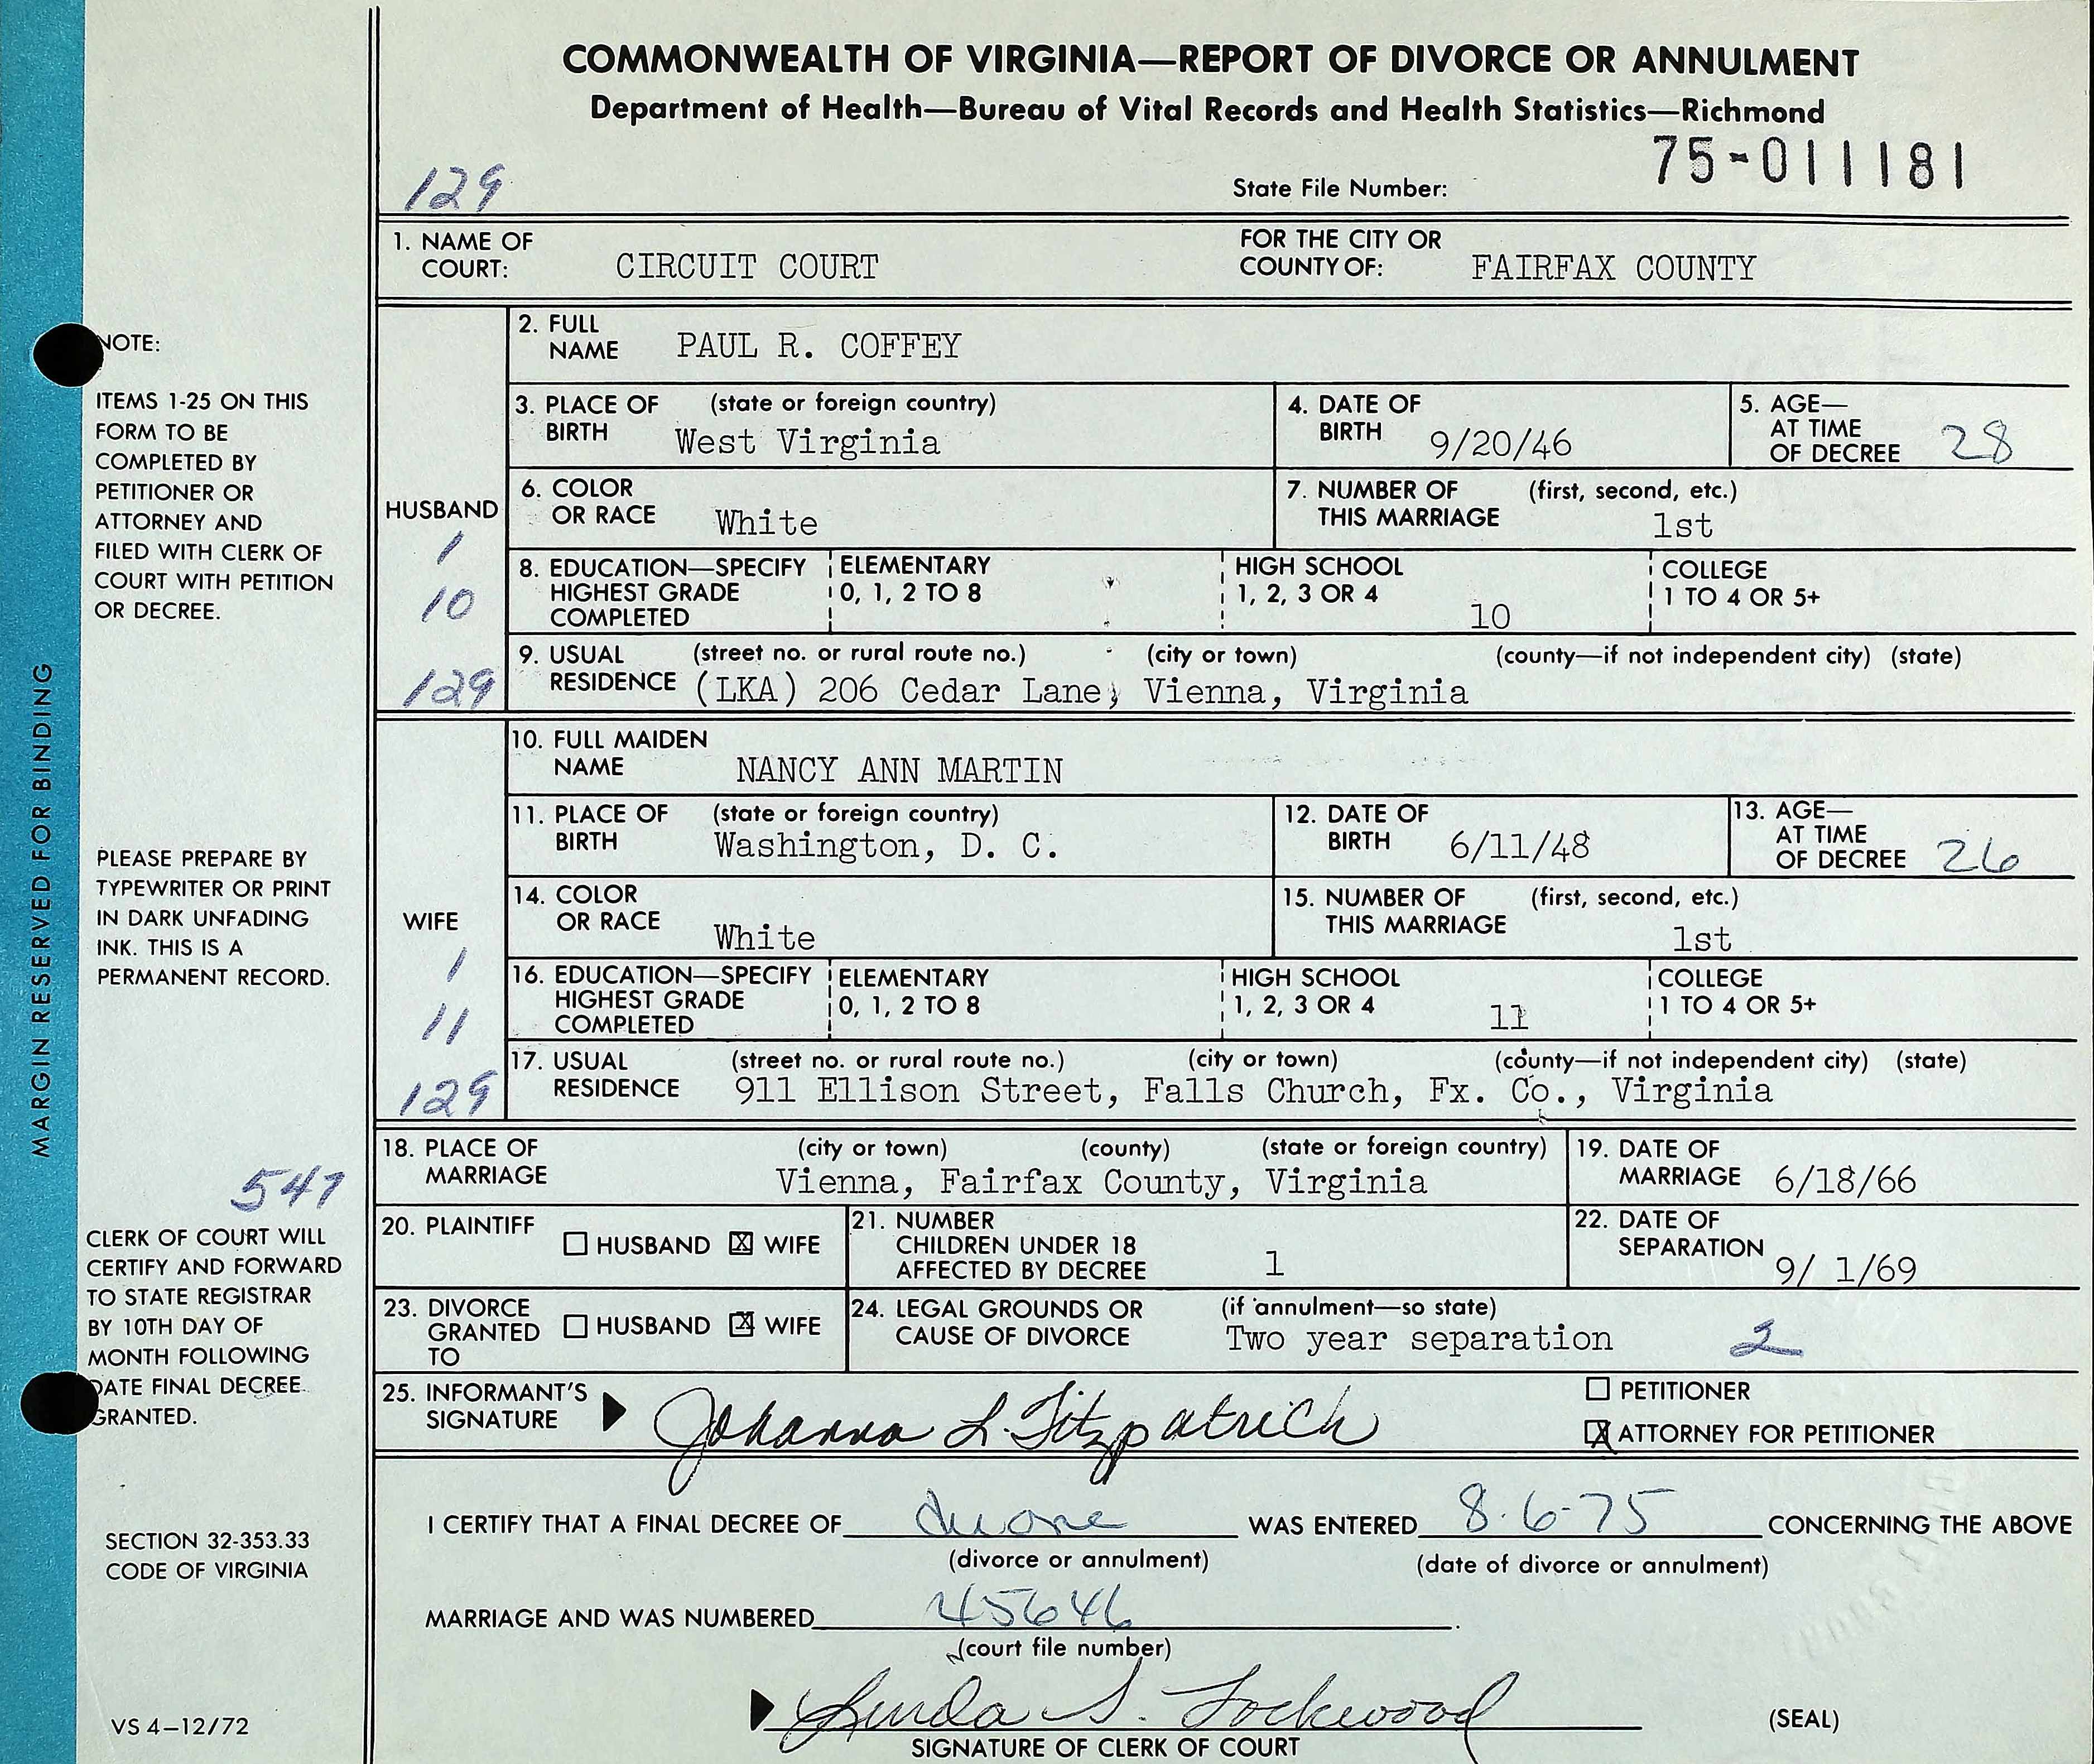 COMMONWEALTH OF VIRGINIA—REPORT OF DIVORCE OR ANNULMENT
Department of Health—Bureau of Vital Records and Health Statistics—Richmond
129
State File Number: 75-011181
1. NAME OF COURT: CIRCUIT COURT
FOR THE CITY OR COUNTY OF: FAIRFAX COUNTY
HUSBAND
1
10
129
2. FULL NAME PAUL R. COFFEY
3. PLACE OF BIRTH (state or foreign country) West Virginia
4. DATE OF BIRTH 9/20/46
5. AGE—AT TIME OF DECREE 28
6. COLOR OR RACE White
7. NUMBER OF THIS MARRIAGE (first, second, etc.) 1st
8. EDUCATION—SPECIFY HIGHEST GRADE COMPLETED
ELEMENTARY 0, 1, 2 TO 8
HIGH SCHOOL 1, 2, 3 OR 4 10
COLLEGE 1 TO 4 OR 5+
9. USUAL RESIDENCE (street no. or rural route no.) (city or town) (county—if not independent city) (state)
(LKA) 206 Cedar Lane, Vienna, Virginia
WIFE
1
11
129
10. FULL MAIDEN NAME NANCY ANN MARTIN
11. PLACE OF BIRTH (state or foreign country) Washington, D. C.
12. DATE OF BIRTH 6/11/48
13. AGE—AT TIME OF DECREE 26
14. COLOR OR RACE White
15. NUMBER OF THIS MARRIAGE (first, second, etc.) 1st
16. EDUCATION—SPECIFY HIGHEST GRADE COMPLETED
ELEMENTARY 0, 1, 2 TO 8
HIGH SCHOOL 1, 2, 3 OR 4 11
COLLEGE 1 TO 4 OR 5+
17. USUAL RESIDENCE (street no. or rural route no.) (city or town) (county—if not independent city) (state)
911 Ellison Street, Falls Church, Fx. Co., Virginia
18. PLACE OF MARRIAGE (city or town) (county) (state or foreign country)
Vienna, Fairfax County, Virginia
19. DATE OF MARRIAGE 6/18/66
20. PLAINTIFF ☐ HUSBAND ☒ WIFE
21. NUMBER CHILDREN UNDER 18 AFFECTED BY DECREE 1
22. DATE OF SEPARATION 9/ 1/69
23. DIVORCE GRANTED TO ☐ HUSBAND ☒ WIFE
24. LEGAL GROUNDS OR CAUSE OF DIVORCE (if annulment—so state)
Two year separation 2
25. INFORMANT'S SIGNATURE Johanna L. Fitzpatrick
☐ PETITIONER
☒ ATTORNEY FOR PETITIONER
I CERTIFY THAT A FINAL DECREE OF divorce WAS ENTERED 8-6-75 CONCERNING THE ABOVE
(divorce or annulment) (date of divorce or annulment)
MARRIAGE AND WAS NUMBERED 45646.
(court file number)
Linda S. Lockwood
SIGNATURE OF CLERK OF COURT
(SEAL)
MARGIN RESERVED FOR BINDING
NOTE:
ITEMS 1-25 ON THIS
FORM TO BE
COMPLETED BY
PETITIONER OR
ATTORNEY AND
FILED WITH CLERK OF
COURT WITH PETITION
OR DECREE.
PLEASE PREPARE BY
TYPEWRITER OR PRINT
IN DARK UNFADING
INK. THIS IS A
PERMANENT RECORD.
547
CLERK OF COURT WILL
CERTIFY AND FORWARD
TO STATE REGISTRAR
BY 10TH DAY OF
MONTH FOLLOWING
DATE FINAL DECREE
GRANTED.
SECTION 32-353.33
CODE OF VIRGINIA
VS 4–12/72